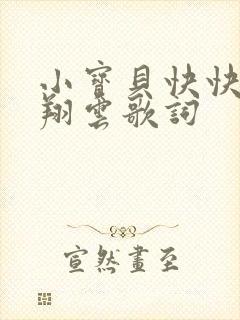 小寶貝快快
翔雲歌詞
宣然畫至